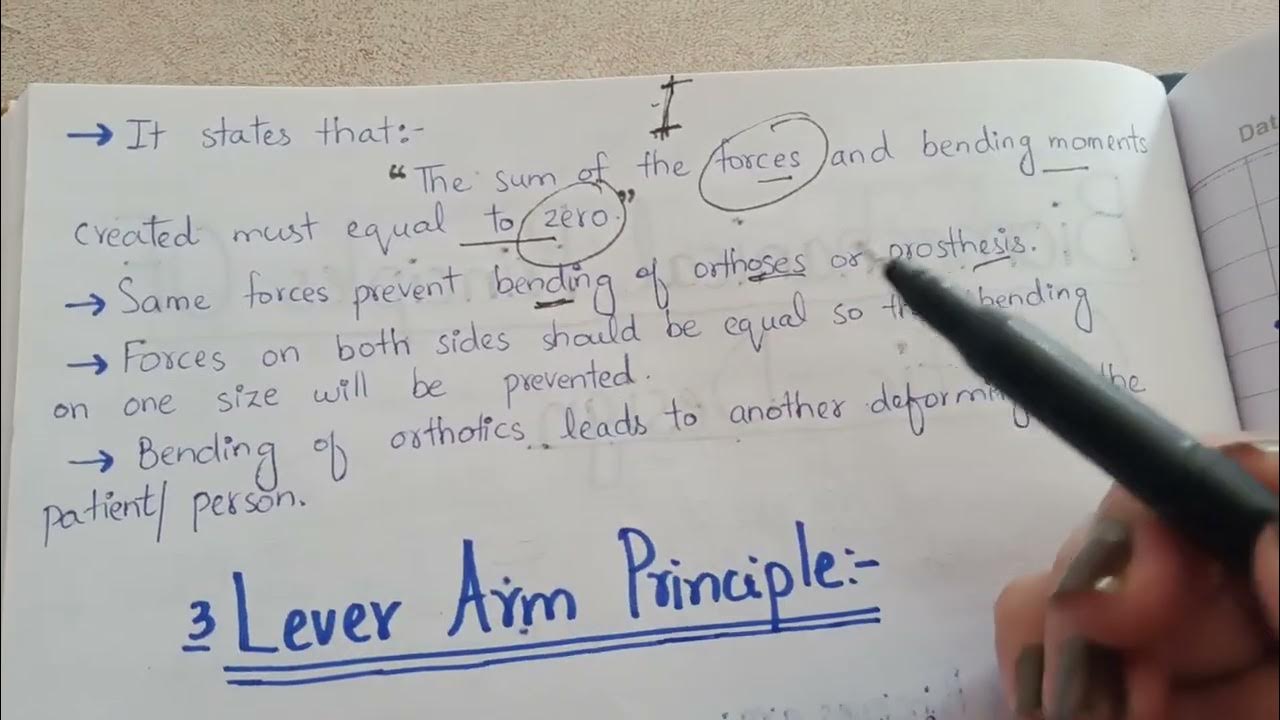 → It states that:-
"The sum of the forces and bending moments
created must equal to zero."
→ Same forces prevent bending of orthoses or prosthesis.
→ Forces on both sides should be equal so bending
on one size will be prevented.
→ Bending of orthotics leads to another the
patient/ person.
3 Lever Arm Principle:-
Dat